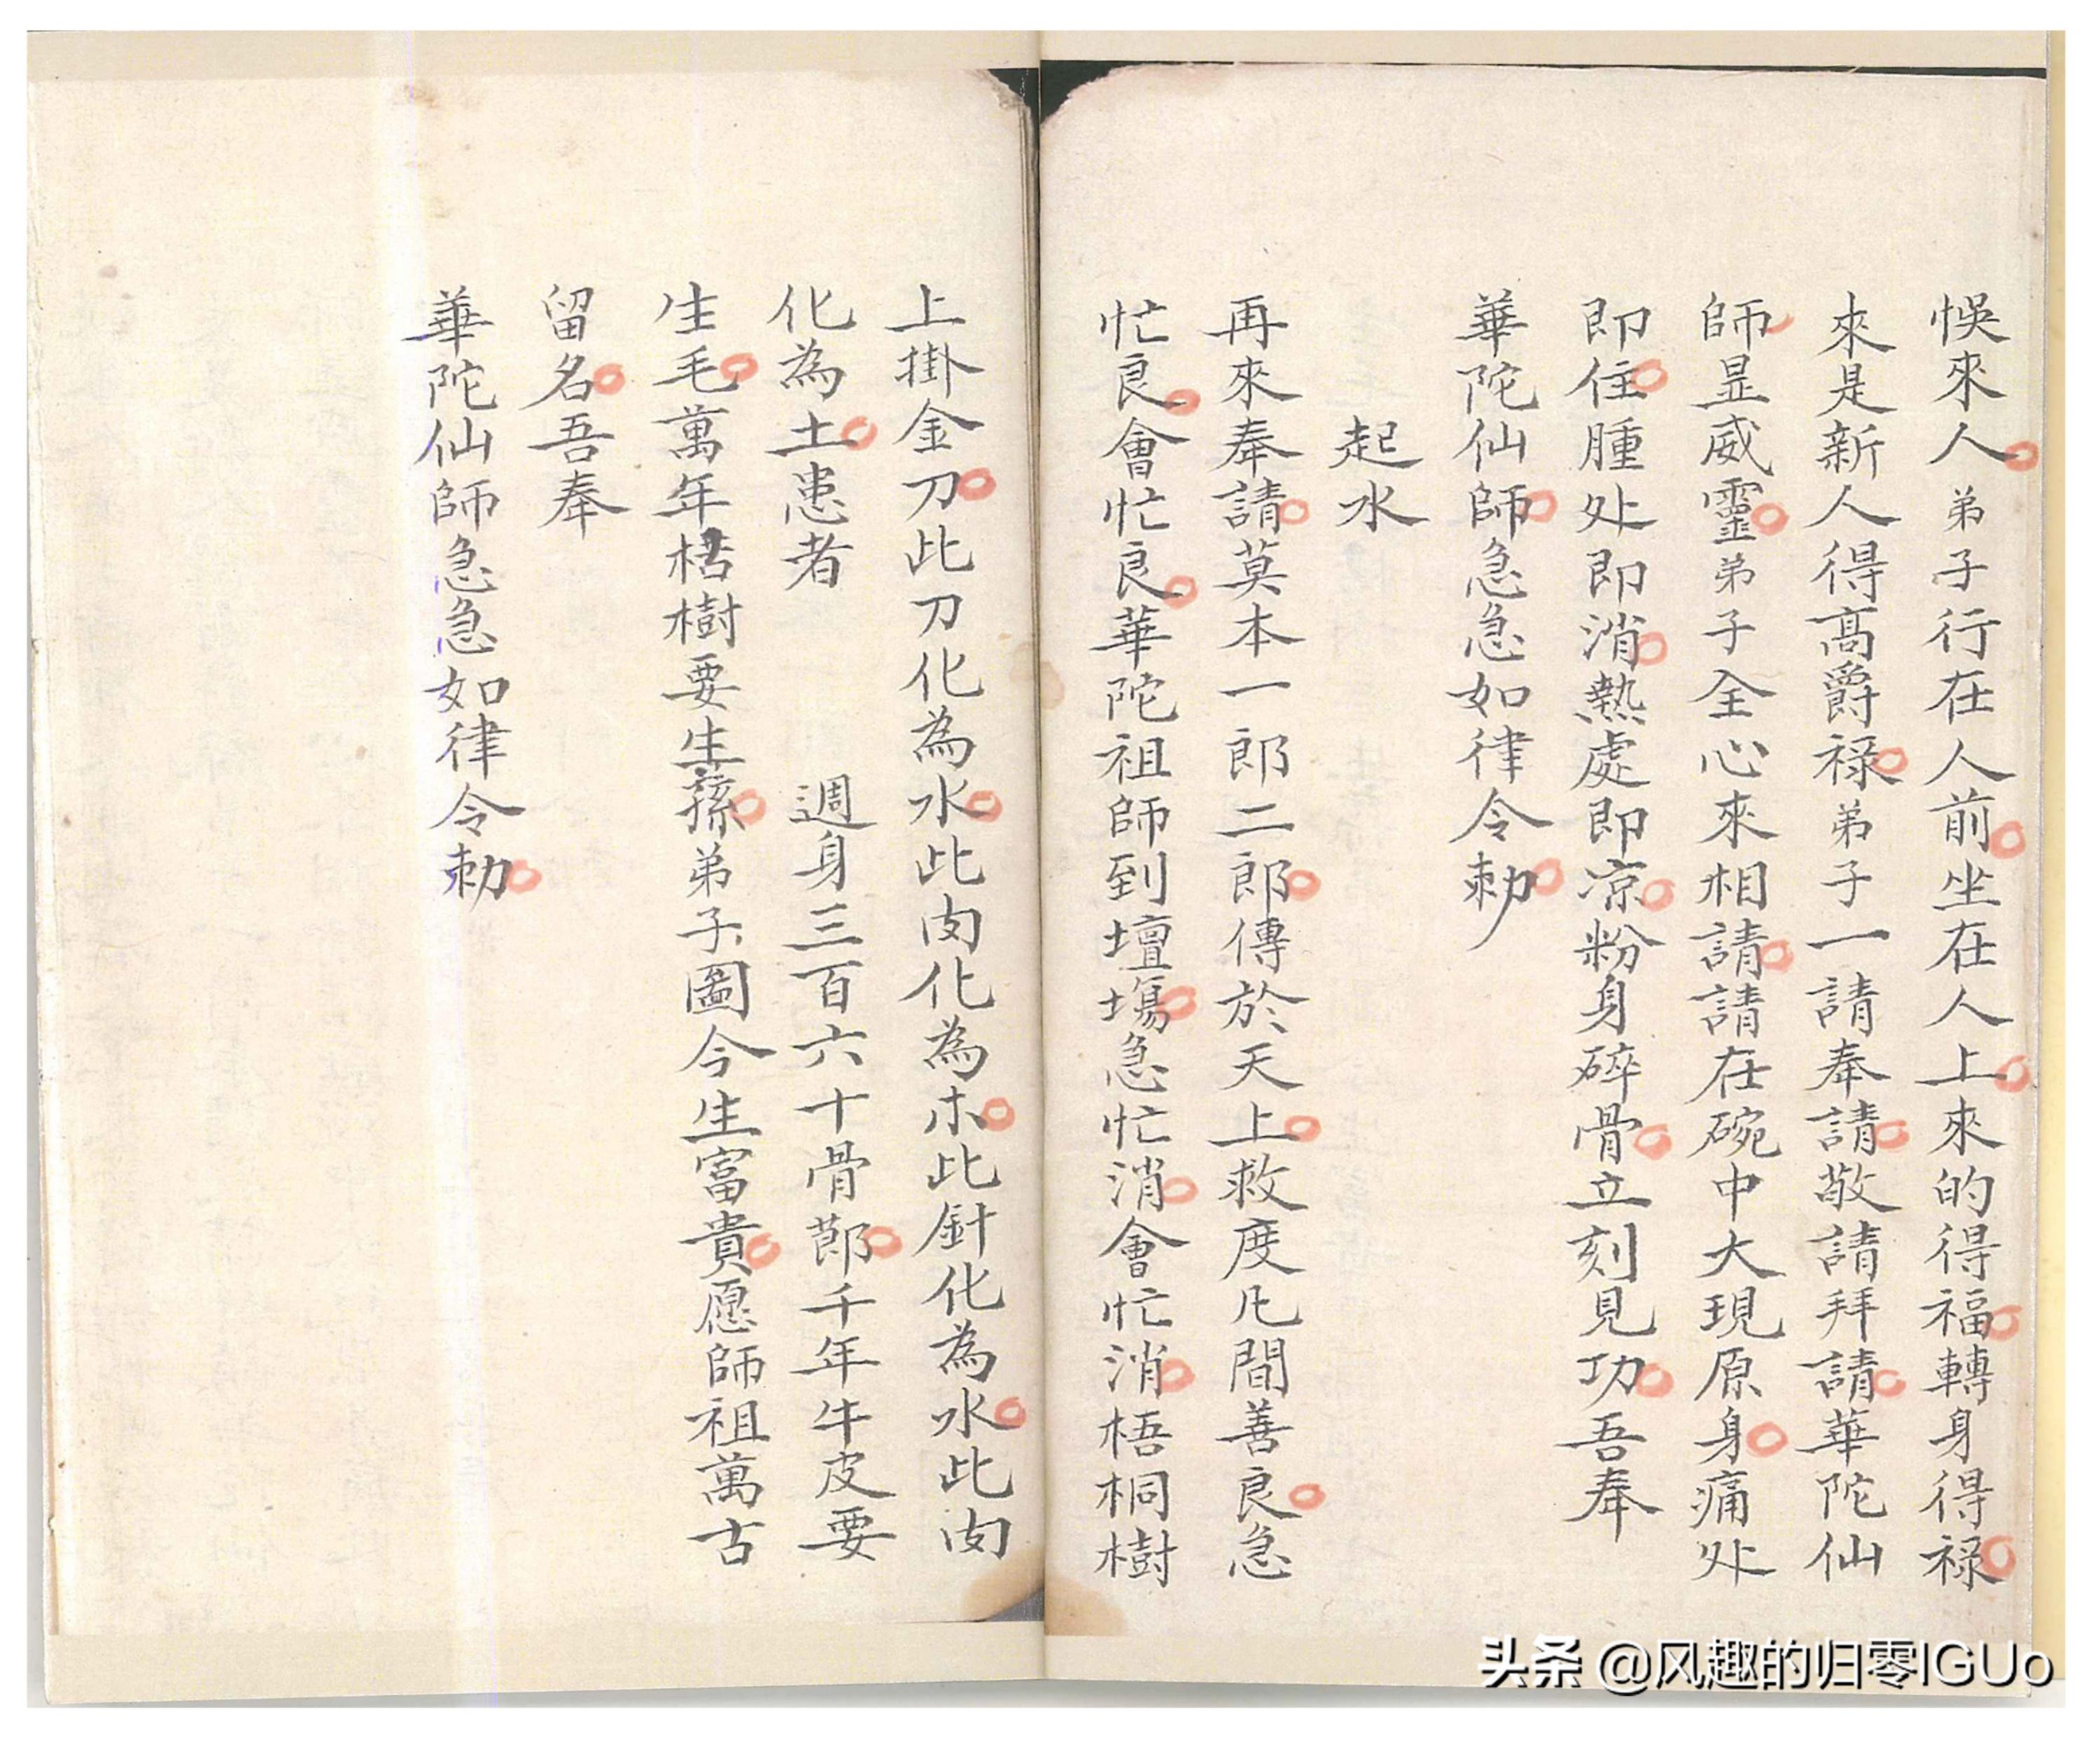 悞來人弟子行在人前坐在人上來的得福轉身得禄
來是新人得髙爵禄弟子一請奉請敬請拜請華陀仙
師显威靈弟子全心來相請請在碗中大現原身痛处
即住腫处即消熱處即凉粉身碎骨立刻見功吾奉
華陀仙師急急如律令勅
起水
再來奉請莫本一郎二郎傳於天上救度凡間善良急
忙良會忙良華陀祖師到壇塲急忙消會忙消梧桐樹
上掛金刀此刀化為水此肉化為木此針化為水此肉
化為土患者 週身三百六十骨莭千年牛皮要
生毛萬年樹要生蓀弟子圖今生富貴愿師祖萬古
留名吾奉
華陀仙師急急如律令勅
头条 @风趣的归零IGUo